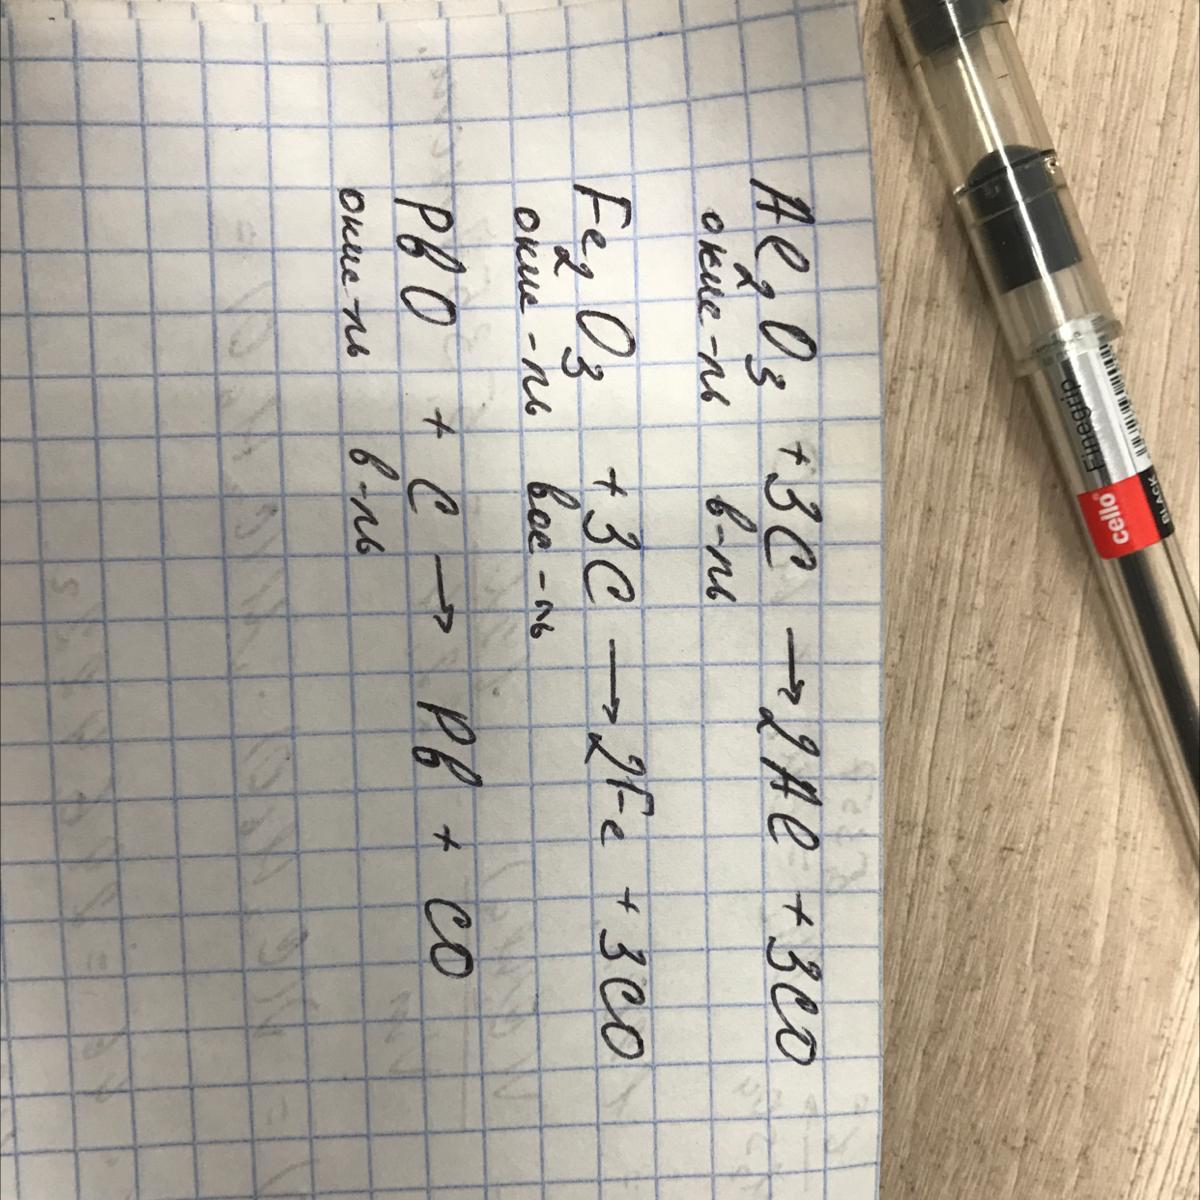 Al2O3 + 3C → 2Al + 3CO
окис-ль в-ль
Fe2O3 + 3C → 2Fe + 3CO
окис-ль вос-ль
PbO + C → Pb + CO
окис-ль в-ль
Finegrip
cello
BLACK